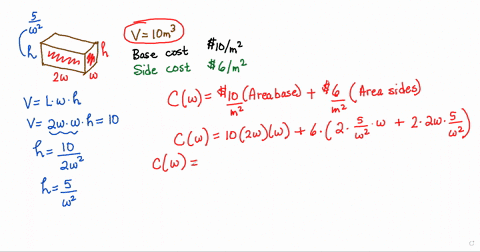 5/w²
V = 10m³
h h
2w w
Base cost $10/m²
Side cost $6/m²
V = L·w·h
V = 2w·w·h = 10
h = 10/2w²
h = 5/w²
C(w) = $10/m² (Area base) + $6/m² (Area sides)
C(w) = 10(2w)(w) + 6·(2·5/w²·w + 2·2w·5/w²)
C(w) =